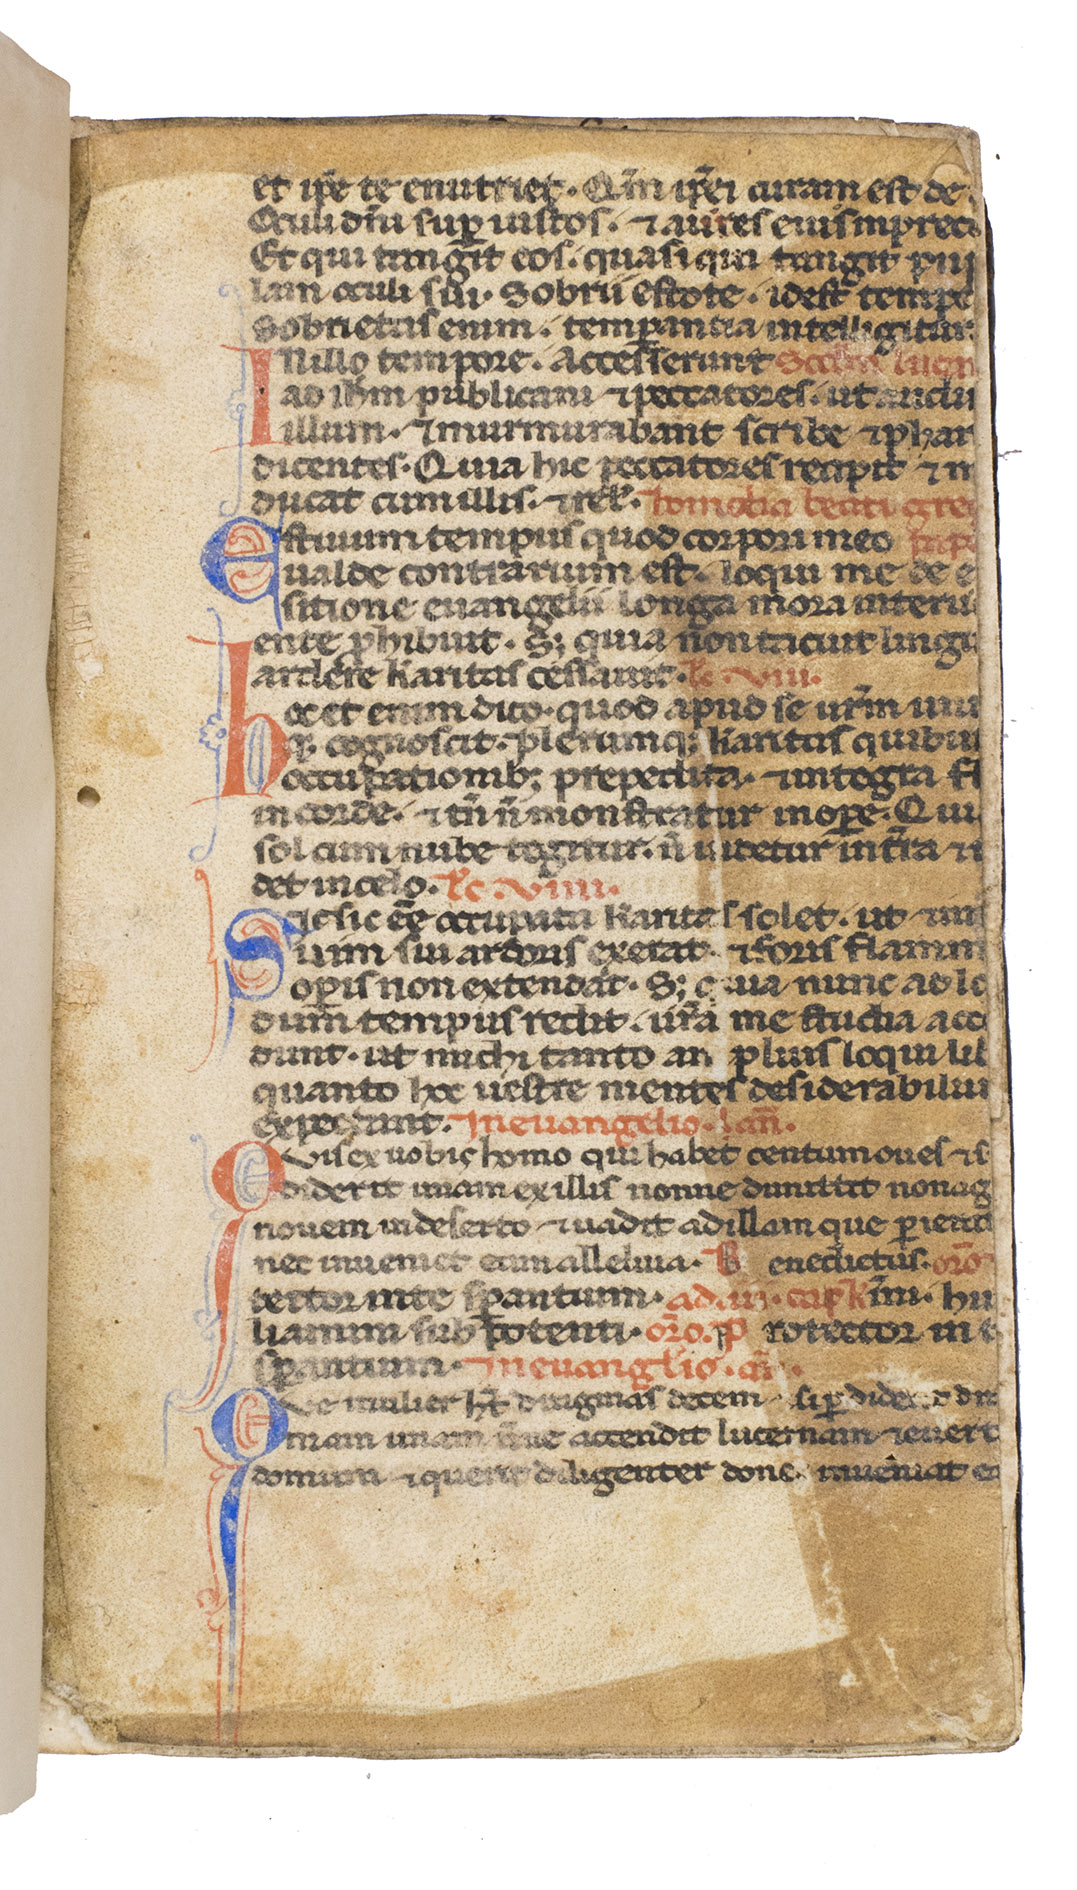 et ip̄e te enutriet. Qm̄ ip̄ei curam est de
Oculi dn̄i sup̱ iustos. ⁊ aures eius inprec
Et qui tangit eos. quasi qui tangit pupi
lam oculi sui. Sobrii estote. idest tempe
Sobrietas enim. temp̱antia intelligitur.
INillo tempore. Accesserunt Sec̄dm lucā
ad ihm̄ publicani ⁊ peccatores. ut audir
illum. ⁊ murmurabant scribe ⁊ phar
dicentes. Quia hic peccatores recipit ⁊ m
ducat cum illis. ⁊ rel̄. Homelia beati greg
Estiuum tempus quod corpori meo pape
ualde contrarium est. loqui me de e
sitione euangelii longa mora interu
ente ꝓhibuit. S; quia non tacuit lingua
ardere karitas cessauit. lc̄. viii.
hoc et enim dico. quod apud se ur̄m unus
q; cognoscit. plerumq; karitas quibus
occupationib; prepedita. ⁊ integra fl
in corde. ⁊ tn̄ n̄ monstratur in oꝑe. Quia
sol cum nube tegitur. n̄ uidetur in tr̄a ⁊
det in celo. lc̄. viiii.
Sic sic eē occupata karitas solet. ut ⁊ int
uim sui ardoris exerat. ⁊ foris flamm
operis non extendat. S; quia nunc ad lo
dum tempus redit. ur̄a me studia acce
dunt. ut michi tanto am plius loqui lib
quanto hoc uestre mentes desiderabiliu
expectant. In euangelio. an̄.
Quis ex uobis homo qui habet centum oues ⁊ s
diderit unam ex illis nonne dimittit nonag
nouem in deserto ⁊ uadit ad illam que ꝑierat
nec inueniet eam alleluia. B enedictus. oro
tector in te sꝑantium. ad. iii. cap k̄mi. hu
liamini sub potenti. oro. P rotector in t
sꝑantium. In euanglio. an̄.
Que mulier hn̄s dragmas decem ⁊ si ꝑdiderit dra
mam unam n̄ne accendit lucernam ⁊ euert
domum ⁊ querit diligenter donec inueniat e